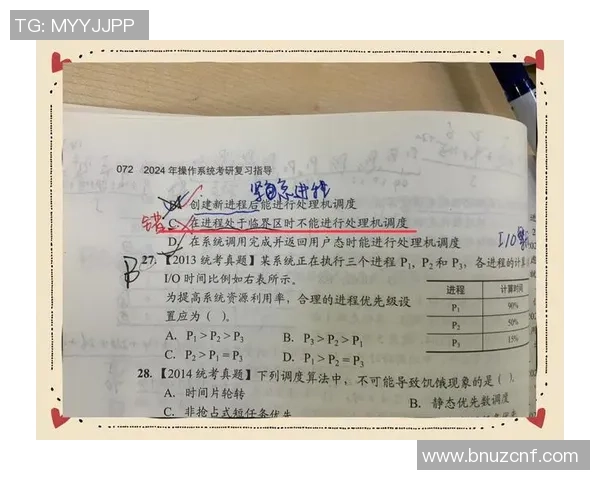 TG: MYYJJPP
072 2024年操作系统考研复习指导
B. 创建新进程后能进行处理机调度
错 C. 在进程处于临界区时不能进行处理机调度
D. 在系统调用完成并返回用户态时能进行处理机调度
B 27. 【2013统考真题】某系统正在执行三个进程 P₁, P₂ 和 P₃, 各进程的计算
I/O 时间比例如右表所示.
为提高系统资源利用率, 合理的进程优先级设
置应为 ( ).
进程 计算时间
P₁ 90%
P₂ 50%
P₃ 15%
A. P₁ > P₂ > P₃ B. P₃ > P₂ > P₁
C. P₂ > P₁ = P₃ D. P₁ > P₂ = P₃
28. 【2014统考真题】下列调度算法中, 不可能导致饥饿现象的是 ( ).
A. 时间片轮转 B. 静态优先数调度
C. 非抢占式短任务优先
www.bnuzcnf.com